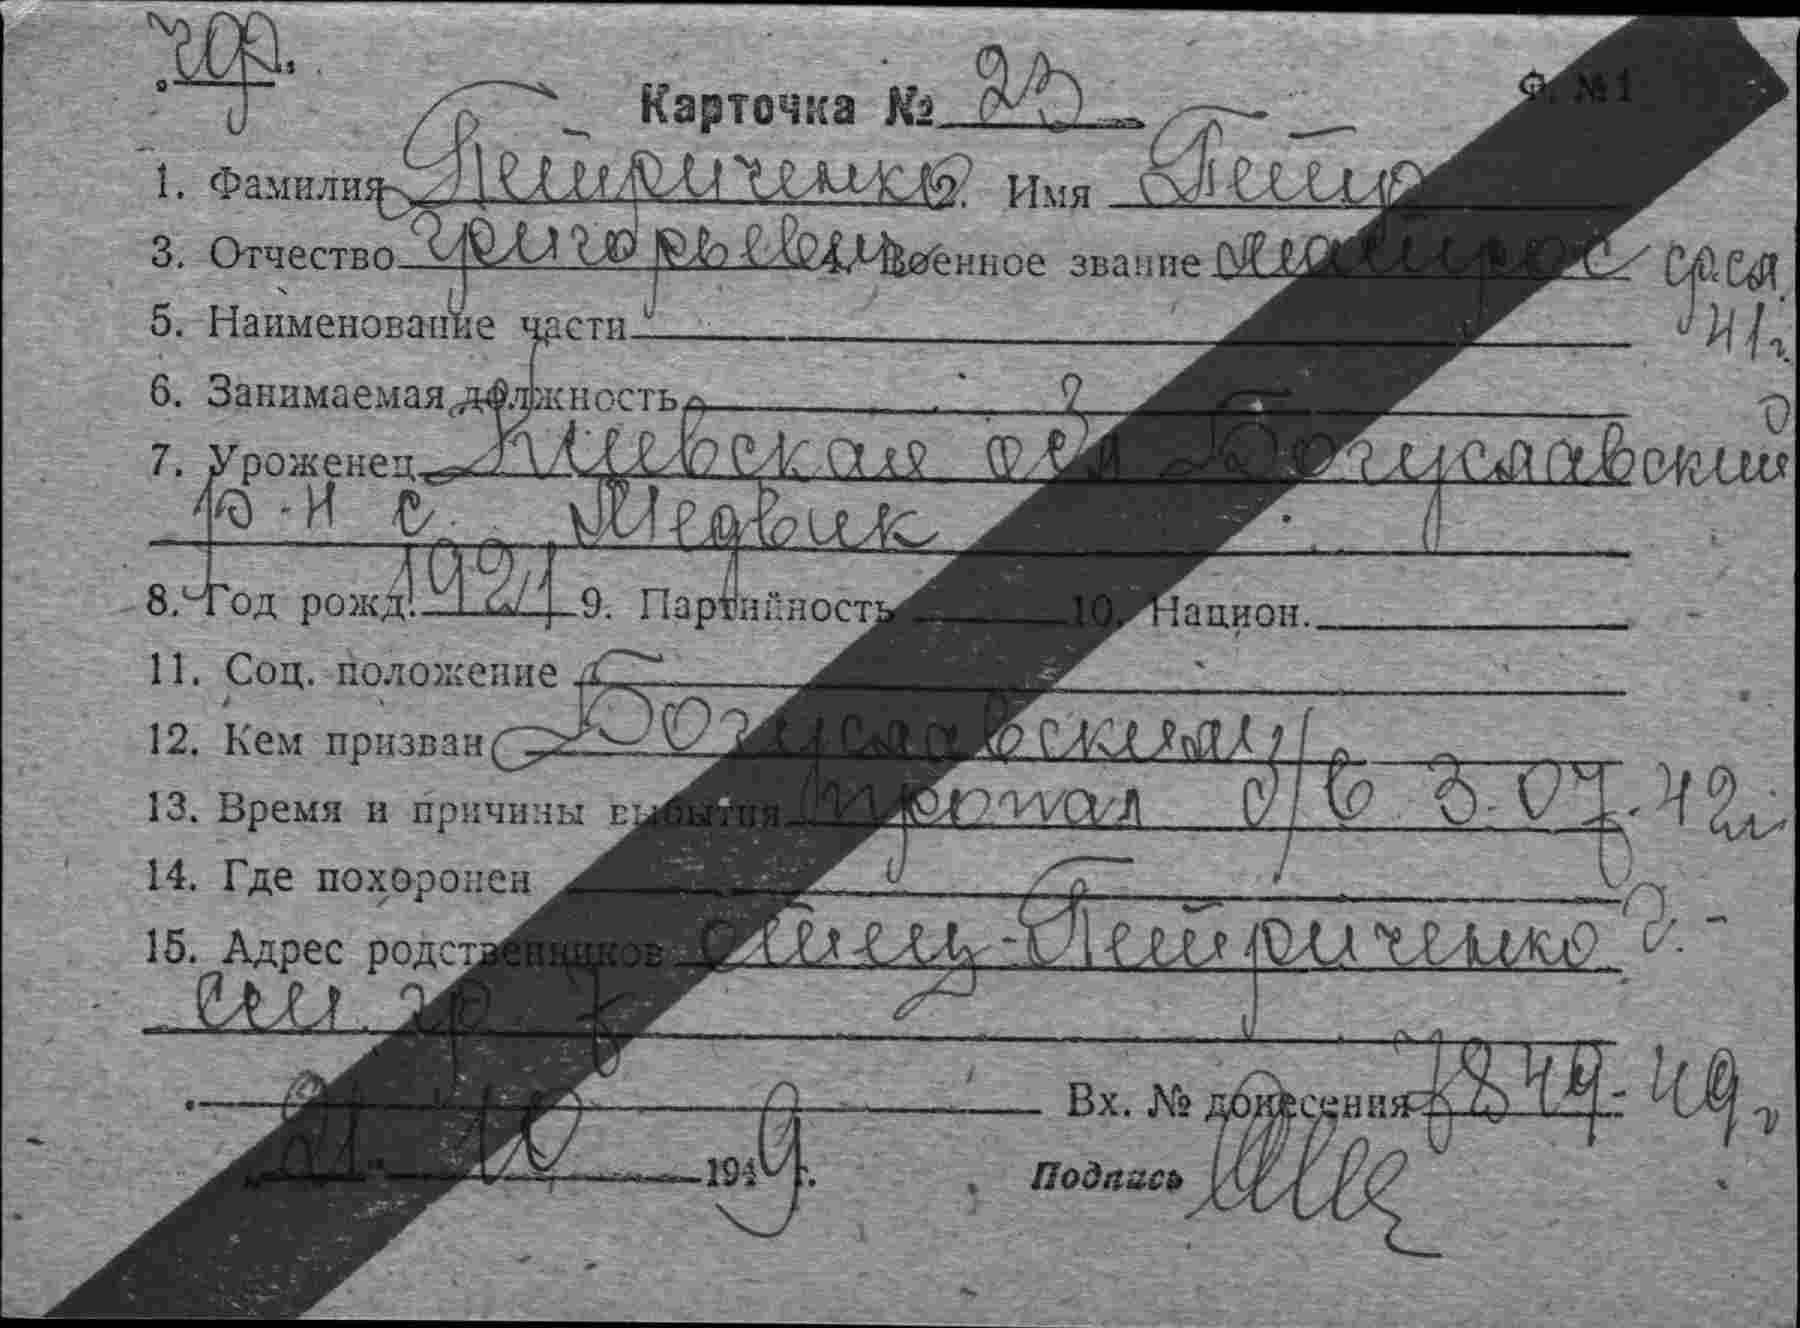 Карточка № 23 Ф. № 1
1. Фамилия Петриченко 2. Имя Петр
3. Отчество Григорьевич 4. Военное звание матрос ср.сл.
41г.
5. Наименование части
6. Занимаемая должность
7. Уроженец Киевская обл Богуславский
р-н с. Медвик
8. Год рожд. 1921 9. Партийность 10. Национ.
11. Соц. положение
12. Кем призван Богуславским
13. Время и причины выбытия пропал б/в 3.07.42г.
14. Где похоронен
15. Адрес родственников отец-Петриченко Г.-
см. гр 7
Вх. № донесения 7849-49г
21 10 1949г.
Подпись